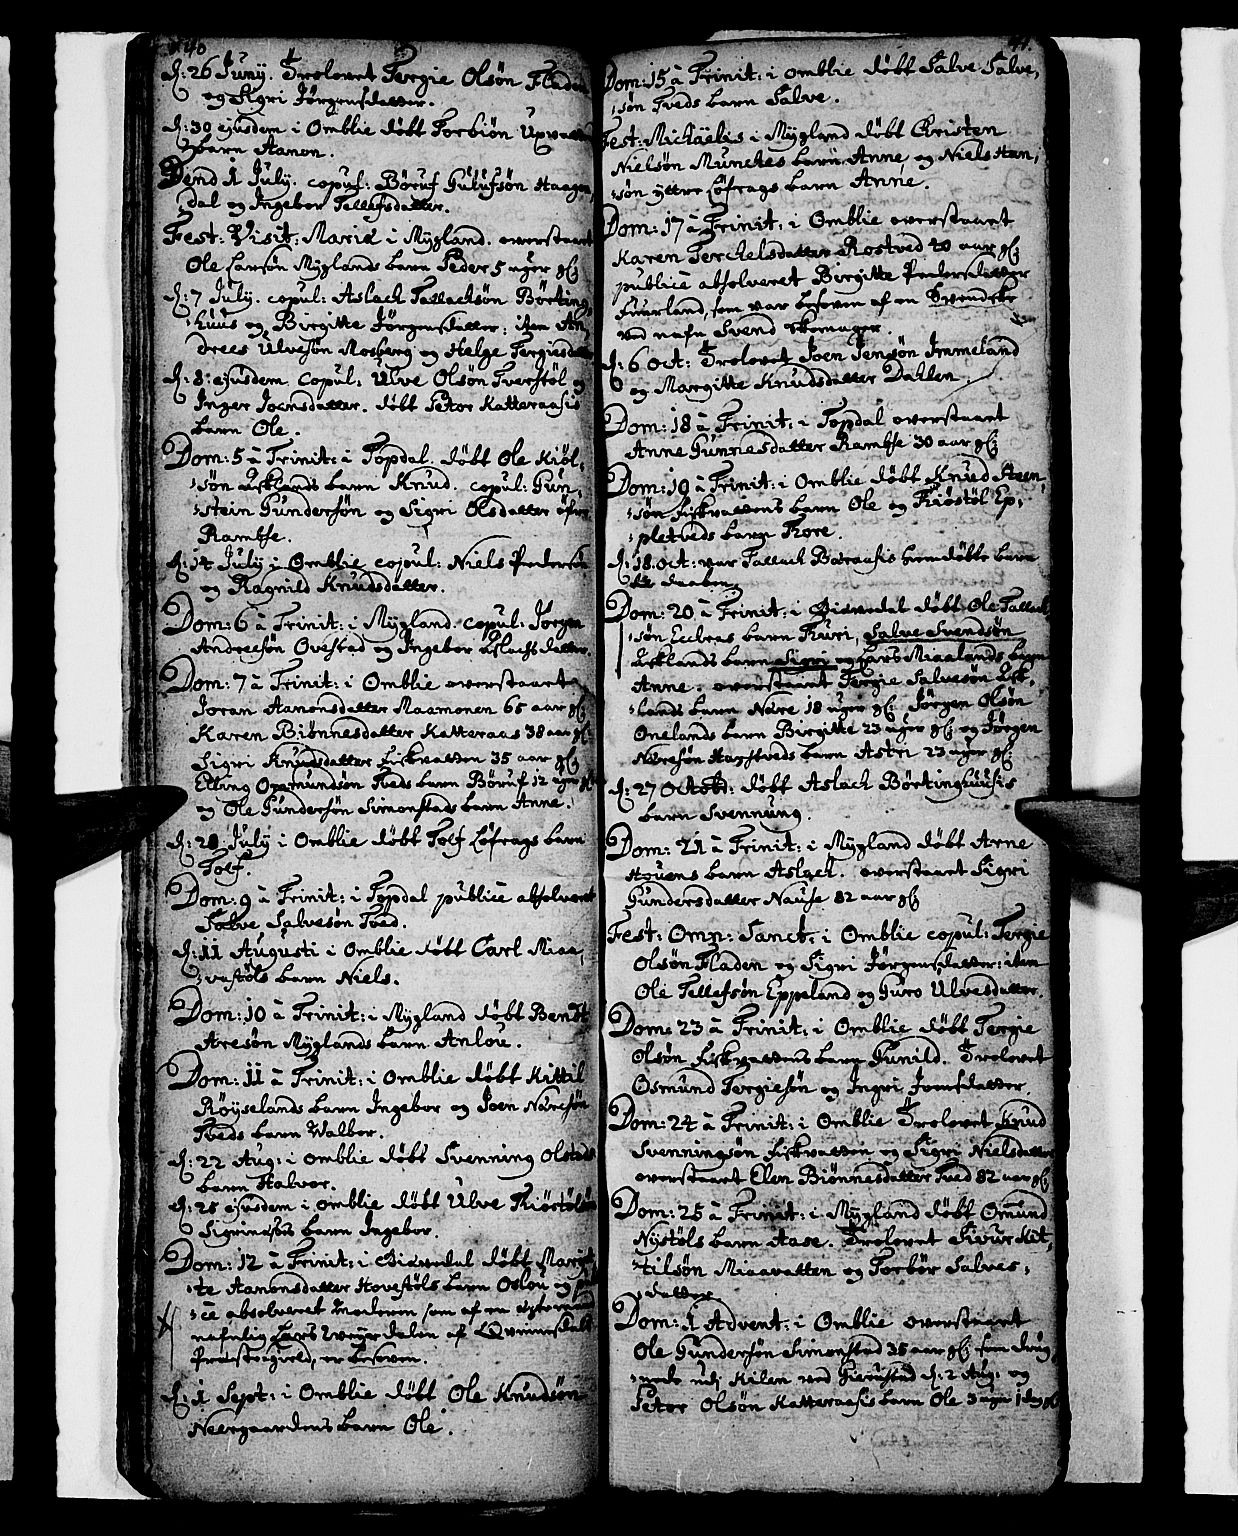 40
d: 26 Juny. Trolovet Tergie Olsøn Fladen
og Sigri Jørgensdatter.
d: 30 ejusdem i Omblie døbt Torbiøn Upvatten
barn Aamon.
Dend 1 July. copul: Børuf Gulufsøn Haagen,
dal og Ingebor Tellefsdatter.
Fest: Visit: Mariæ i Mygland. overstaaet
Ole Larsøn Myglands barn Peder 5 uger gl:
d: 7 July. copul: Aslach Tallachsøn Børting,
huus og Birgitte Jørgensdatter: item An,
drees Ulvesøn Mosberg og Helge Tergiesdatter
d: 8: ejusdem. copul: Ulve Olsøn Tverstøl og
Inger Joensdatter. døbt Petor Katteraasis
barn Ole.
Dom: 5 à Trinit: i Topdal. døbt Ole Kiøl,
søn Esklands barn Knud. copul: Gun,
stein Gundersøn og Sigri Olsdatter øfre
Ramse.
d: 14 July i Omblie copul: Niels Pedersøn
og Ragnild Knudsdatter.
Dom: 6 à Trinit: i Mygland. copul: Jørgen
Andreesøn Ovestad og Ingebor Aslachsdatter.
Dom: 7 à Trinit: i Omblie overstaaet
Joran Aamonsdatter Maamonen 65 aar gl:
Karen Biønnesdatter Katteraas 38 aar gl:
Sigri Knudsdatter Fiskvatten 35 aar gl:
Elling Opemundsøn Tveds barn Børuf 12 uger gl:
og Ole Gundersøn Simonstads barn Anne.
d: 28 July i Omblie døbt Tolf Løfrags barn
Tolf.
Dom: 9 à Trinit: i Topdal publice absolveret
Salve Salvesøn Tved.
d: 11 Augusti i Omblie døbt Carl Miaa,
vestøls barn Niels.
Dom: 10 à Trinit: i Mygland døbt Bendt
Aresøn Myglands barn Anlou.
Dom: 11 à Trinit: i Omblie døbt Kittil
Røyselands barn Ingebor og Joen Naresøn
Tveds barn Walbor.
d: 22 Aug: i Omblie døbt Svenning Olstads
barn Halvor.
d: 25 ejusdem i Omblie døbt Ulve Kiøstøls
barn Ingebor.
Dom: 12 à Trinit: i døbt Margit
te Aamonsdatter Hovestøls barn Oslou og publi
ce absolveret Moderen som af en
nafnlig Lars af Qvinnesdals
Præstegield, er besoven.
d: 1 Sept: i Omblie døbt Ole Knudsøn
Neergaardens barn Ole.
41.
Dom: 15 à Trinit: i Omblie døbt Salve Salve,
søn Tveds barn Salve.
Fest: Michaëlis i Mygland døbt Christen
Nielsøn Munches barn Anne, og Niels Han,
søn yttre Løfrags barn Anne.
Dom: 17 à Trinit: i Omblie overstaaet
Karen Terchelsdatter Rostved 40 aar gl:
publice absolveret Birgitte Pedersdatter
Fuurland, som var besoven af en Svenske
ved nafn Svend Skomager.
d: 6 Oct: Trolovet Joen Jensøn Immeland
og Margitte Knudsdatter Dahlen.
Dom: 18 à Trinit: i Topdal overstaaet
Anne Gunnesdatter Ramse 30 aar gl:
Dom: 19 à Trinit: i Omblie døbt Knud Steen,
søn Fiskvattens barn Ole og Kiøstøl Ep,
pletveds barn Tore.
d: 18. Oct: var Tallach Baasaasis hiemdøbte barn
til daaben.
Dom: 20 à Trinit: i døbt Ole Tallach,
søn barn Turi, Salve Svendsøn
Esklands barn Sigri og Lars Miaalands barn
Anne. overstaaet Tergie Salvesøn Esk,
lands barn Nare 18 uger gl: Jørgen Olsøn
Onelands barn Birgitte 23 uger gl: og Jørgen
Naresøn Haugstveds barn Astri 23 uger gl:
d: 27 Octobr: døbt Aslach Børtinghuusis
barn Svennung.
Dom: 21 à Trinit: i Mygland døbt Arne
Houens barn Aslach. overstaaet Sigri
Gundersdatter Nause 82 aar gl:
Fest: Omn: Sanct: i Omblie copul: Tergie
Olsøn Fladen og Sigri Jørgensdatter: item
Ole Tellefsøn Eppeland og Guro Ulvesdatter.
Dom: 23 à Trinit: i Omblie døbt Tergie
Olsøn Fiskvattens barn Gunild. Trolovet
Osmund Tergiesøn og Ingri Joensdatter.
Dom: 24 à Trinit: i Omblie Trolovet Knud
Svenningsøn Fiskvatten og Sigri Nielsdatter
overstaaet Elen Biønnesdatter Tved 82 aar gl:
Dom: 25 à Trinit: i Mygland døbt Omund
Nystøls barn Aase. Trolovet Sivur Kit,
tilsøn Miaavatten og Torbor Salves,
datter.
Dom: 1 Advent: i Omblie overstaaet
Ole Gundersøn Simonstad 35 aar gl: som drug,
nede udi Kilen ved d: 2 Aug: og
Petor Olsøn Katteraasis barn Ole 3 uger 1 dag gl: